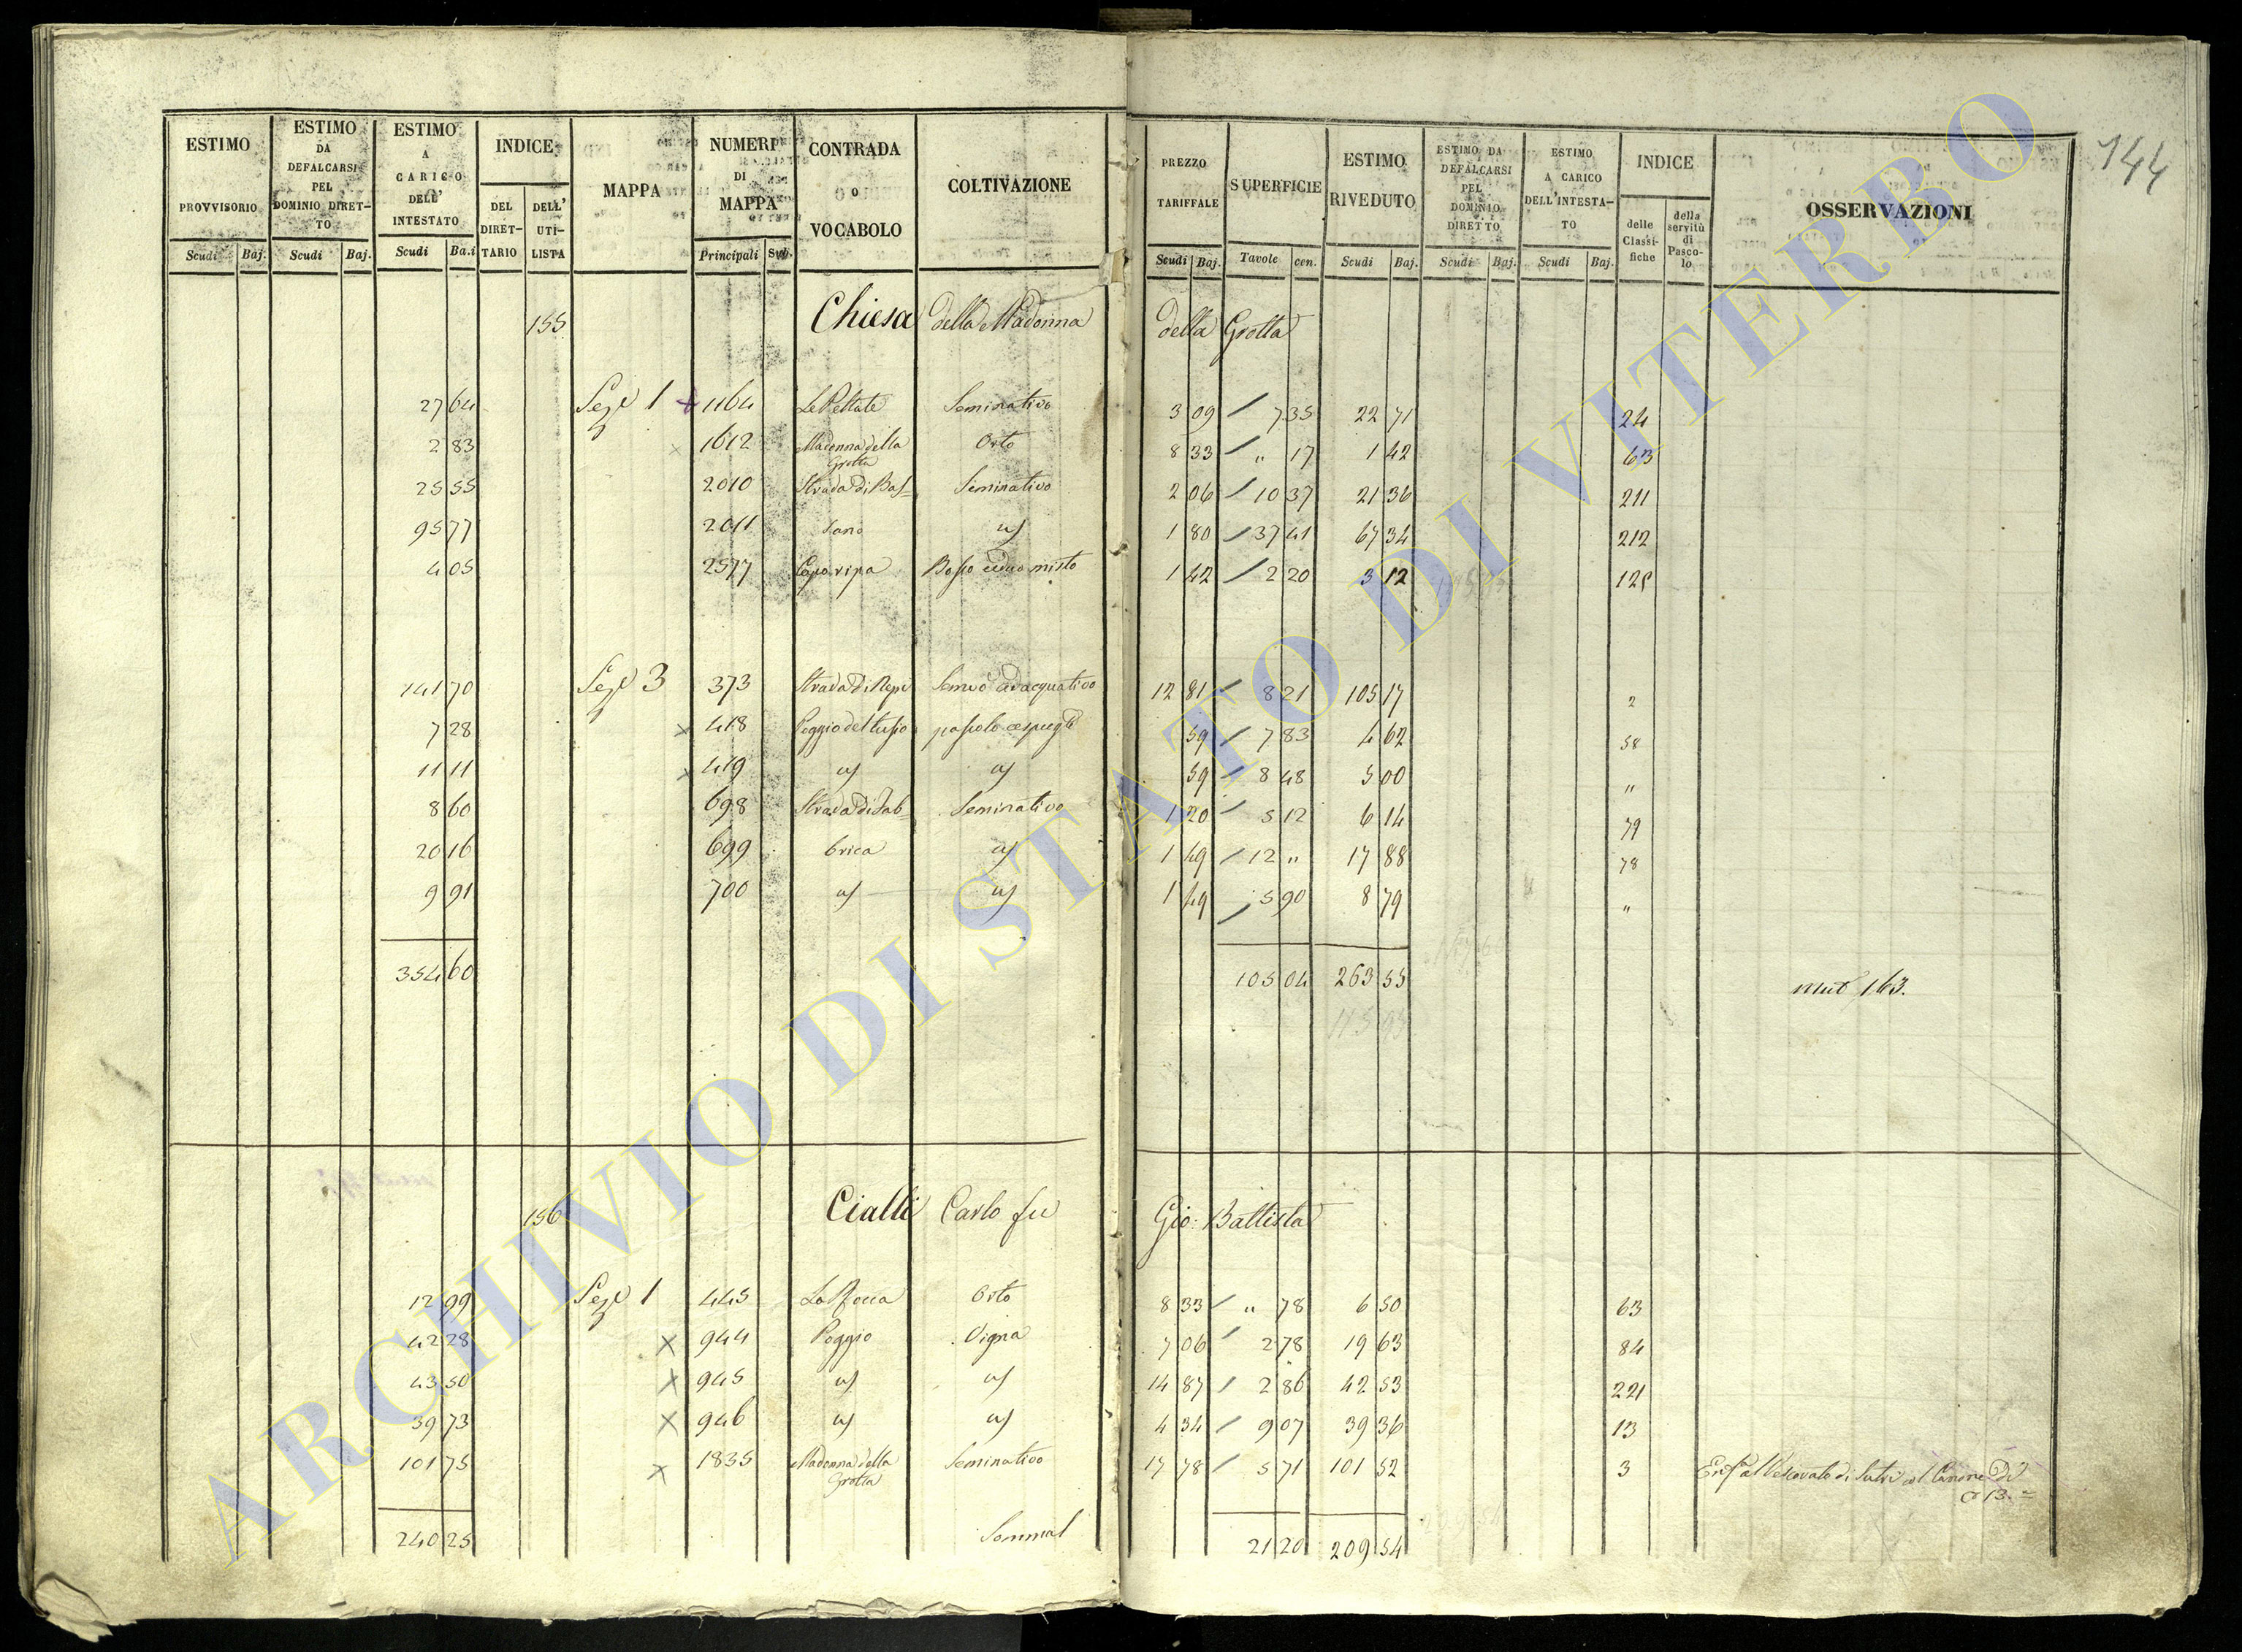 144
ESTIMO PROVVISORIO Scudi Baj.
ESTIMO DA DEFALCARSI PEL DOMINIO DIRET- TO Scudi Baj.
ESTIMO A CARICO DELL' INTESTATO Scudi Ba.i
INDICE DEL DIRET- TARIO DELL' UTI- LISTA
MAPPA
NUMERI DI MAPPA Principali Sub.
CONTRADA O VOCABOLO
COLTIVAZIONE
PREZZO TARIFFALE Scudi Baj.
SUPERFICIE Tavole cen.
ESTIMO RIVEDUTO Scudi Baj.
ESTIMO DA DEFALCARSI PEL DOMINIO DIRETTO Scudi Baj.
ESTIMO A CARICO DELL'INTESTA- TO Scudi Baj.
INDICE delle Classi- fiche della servitù di Pasco- lo
OSSERVAZIONI
155 Chiesa della Madonna della Grotta
27 64 Seze 1 1164 Le Pettate Seminativo 3 09 7 35 22 71 24
2 83 1612 Madonna della Grotta Orto 8 33 " 17 1 42 63
25 55 2010 Strada di Bas- Seminativo 2 06 10 37 21 36 211
95 77 2011 sano 1 80 37 41 67 34 212
4 05 2577 Capo ripa Bosco ceduo misto 1 42 2 20 3 12 125
141 70 Seze 3 373 Strada di Nepi Semvo adacquativo 12 81 8 21 105 17 2
7 28 × 418 Poggio del pascolo cespugto 59 7 83 4 62 58
11 11 × 419 59 8 48 5 00 "
8 60 698 Strada di Fab- Seminativo 1 20 5 12 6 14 79
20 16 699 brica 1 49 12 " 17 88 78
9 91 700 1 49 5 90 8 79 "
354 60 105 04 263 55 mut 163.
156 Cialli Carlo fu Gio: Battista
12 99 Seze 1 445 La Rocca Orto 8 33 " 78 6 50 63
42 28 × 944 Poggio Vigna 7 06 2 78 19 63 84
43 50 × 945 14 87 2 86 42 53 221
39 73 × 946 4 34 9 07 39 36 13
101 75 × 1835 Madonna della Grotta Seminativo 17 78 5 71 101 52 3 al Vescovato di Sutri col Canone Di 13
240 25 21 20 209 54
ARCHIVIO DI STATO DI VITERBO